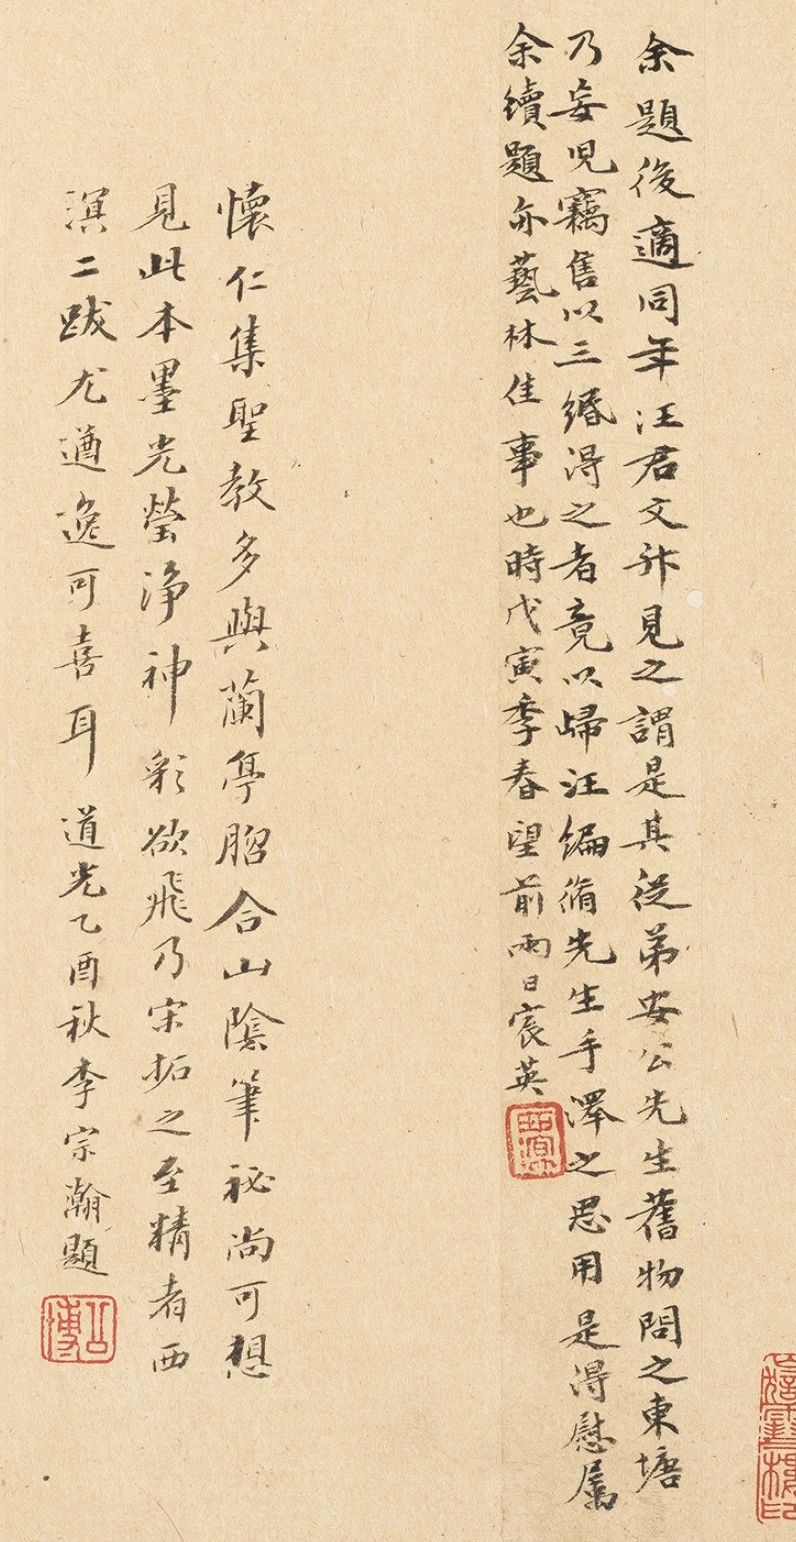 余題後適同年汪君文升見之謂是其從弟安公先生舊物問之東塘
乃妄児竊售以三緡得之者竟以歸汪編脩先生手澤之思用是得慰属
余續題亦藝林佳事也時戊寅季春望前兩日宸英
西溟
懷仁集聖教多與蘭亭脗合山陰筆祕尚可想
見此本墨光瑩浄神彩欲飛乃宋拓之至精者西
溟二跋尤遒逸可喜耳道光乙酉秋李宗瀚題
公博